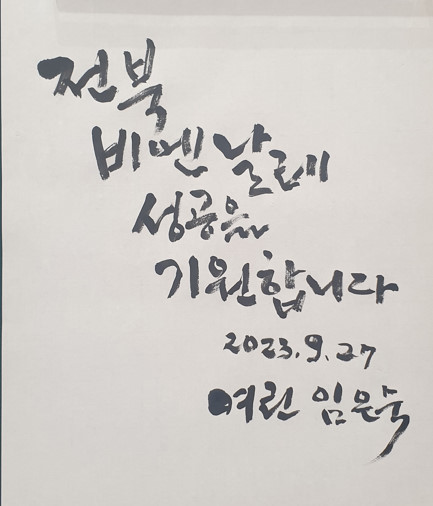 전북
비엔날레
성공을
기원합니다
2023.9.27
여린 임은숙